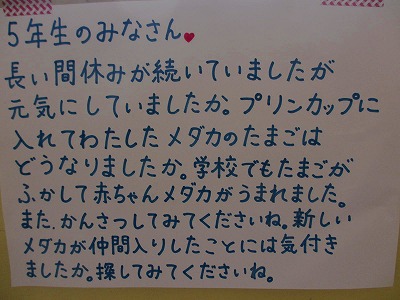 5年生のみなさん♥
長い間休みが続いていましたが
元気にしていましたか。プリンカップに
入れてわたしたメダカのたまごは
どうなりましたか。学校でもたまごが
ふかして赤ちゃんメダカがうまれました。
また、かんさつしてみてくださいね。新しい
メダカが仲間入りしたことには気付き
ましたか。探してみてくださいね。